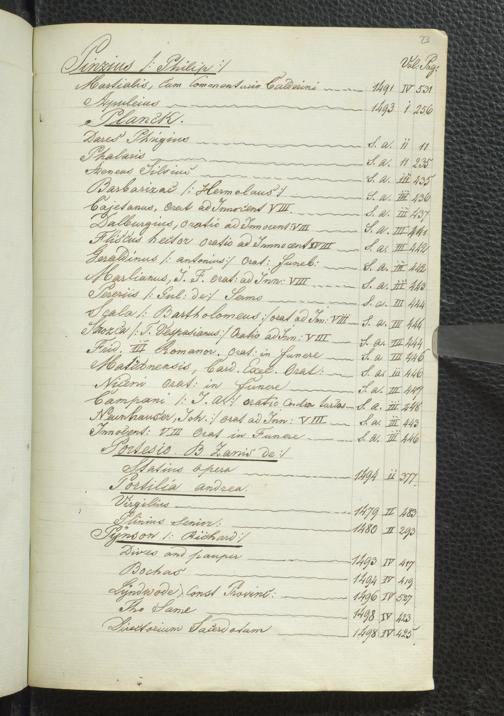 73
Vol. Pag:
Pinzius /: Philip :/
Martialis, Cum Commentario Calderini 1491 IV 531
Apuleius 1493 I 256
Planck.
Dares Phrigius S. a. ii 11
Phalaris S. a. 11 235
Aeneas Silvius S. a. III 435
Barbarizat /: Hermolaus :/ S. a. III 436
Cajetanus, Orat ad Innocent VIII S. a. III 437
Dalburgius, oratio ad Innocent: VIII S. a. III 441
Fliscus hector oratio ad Innocent VIII S. a. III 442
Geraldinus /: antonius :/ Orat: funeb: S. a. III 442
Marlianus, J. F. orat: ad Inn: VIII S. a. III 443
Pereriis /: Gul: de :/ Same S. a. III 444
Scala /: Bartholomeus :/ orat ad Inn: VIII S. a. III 444
Strozza /: T. Vespasianus :/ Oratio ad Inn: VIII. S. a. III 444
Frid. III Romanor. Orat: in funere S. a. III 446
Matisconensis, Card. Orat: S. a. III 446
Niceni orat: in funere S. a. III 447
Campani /: J. A :/ oratio Contra turcos S. a. III 448
Neunhauser, Joh: / orat ad Inn: VIII. S. a. III 443
Innocent: VIII Orat in Funere S. a. III 446
Portesio B. Zanis de :/
Statius opera 1494 ii 377
Portilia andrea
Virgilius 1479 II 483
Plinius Senior: 1480 II 293
Pynson /: Richard :/
Dives and pauper 1493 IV 417
Bochas 1494 IV 419
Lyndwode, Const Provinc: 1496 IV 537
Tho Same 1498 IV 423
Directorium Sacerdotum 1498 IV 425